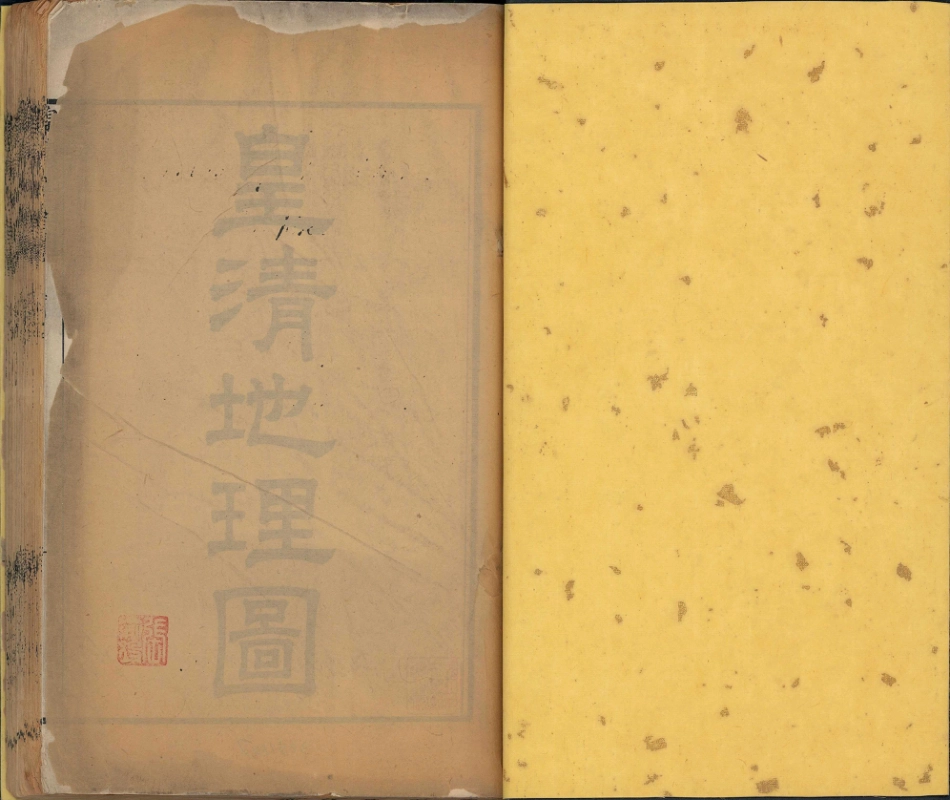 皇清地理圖